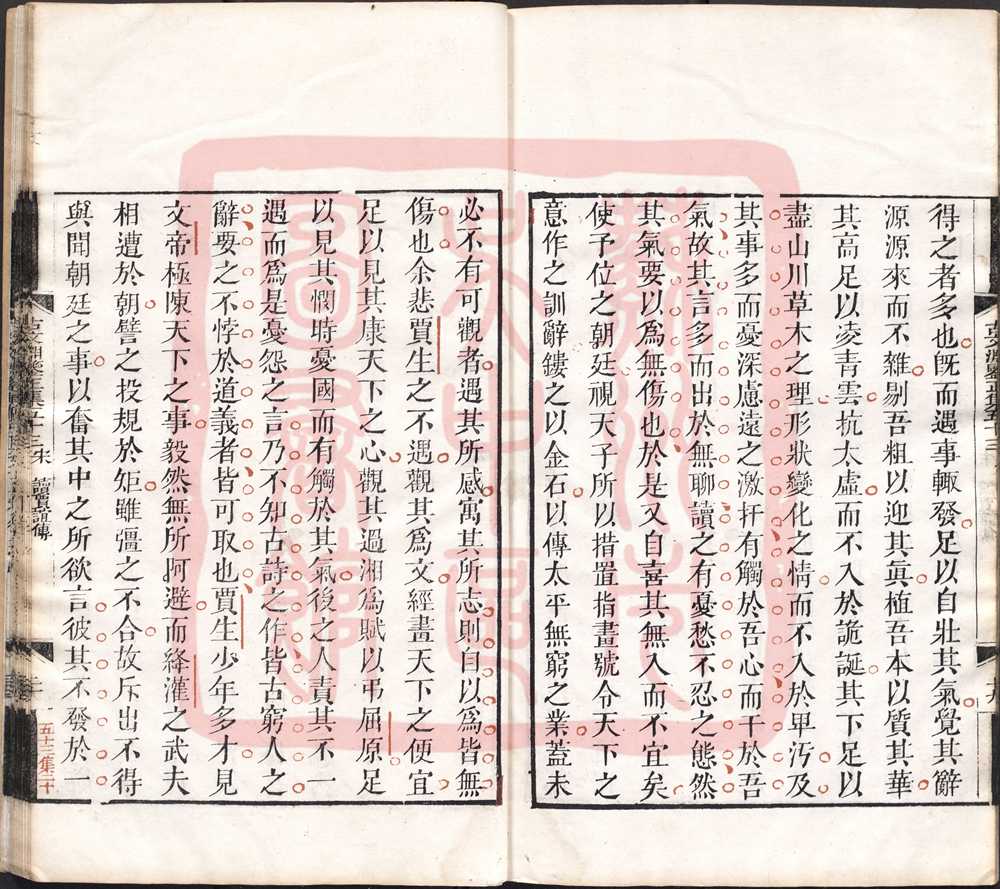 得之者多也旣而遇事輙發足以自壯其氣覺其辭
源源來而不雜剔吾粗以迎其眞植吾本以質其華
其高足以凌青雲抗太虛而不入於詭誕其下足以
盡山川草木之理形狀變化之情而不入於卑汚及
其事多而憂深慮遠之激扞有觸於吾心而干於吾
氣故其言多而出於無聊讀之有憂愁不忍之態然
其氣要以爲無傷也於是又自喜其無入而不宜矣
使予位之朝廷視天子所以措置指畫號令天下之
意作之訓辭鏤之以金石以傳太平無窮之業葢未
必不有可觀者遇其所感寓其所志則自以爲皆無
傷也余悲賈生之不遇觀其爲文經畫天下之便宜
足以見其康天下之心觀其過湘爲賦以弔屈原足
以見其憫時憂國而有觸於其氣後之人責其不一
遇而爲是憂怨之言乃不知古詩之作皆古窮人之
辭要之不悖於道義者皆可取也賈生少年多才見
文帝極陳天下之事毅然無所阿避而絳灌之武夫
相遭於朝譬之投規於矩雖彊之不合故斥出不得
與聞朝廷之事以奮其中之所欲言彼其不發於一
讀賈誼傳
五十三集二十